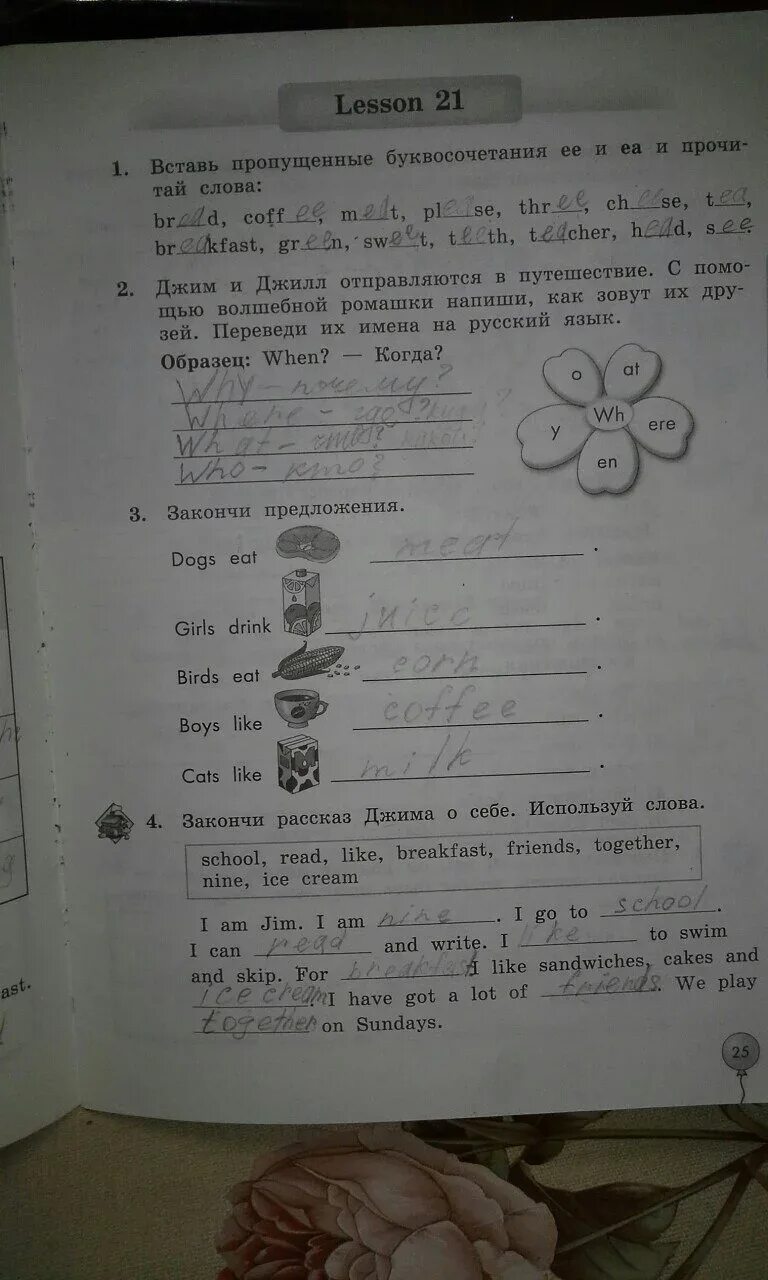 Lesson 21
1. Вставь пропущенные буквосочетания ee и ea и прочи-
тай слова:
bread, coffee, meat, please, three, cheese, tea,
breakfast, green, sweet, teeth, teacher, head, see.
2. Джим и Джилл отправляются в путешествие. С помо-
щью волшебной ромашки напиши, как зовут их дру-
зей. Переведи их имена на русский язык.
Образец: When? — Когда?
Why – почему?
Where – где?
What – что?
Who – кто?
o
at
y
Wh
ere
en
3. Закончи предложения.
Dogs eat meat.
Girls drink juice.
Birds eat corn.
Boys like coffee.
Cats like milk.
4. Закончи рассказ Джима о себе. Используй слова.
school, read, like, breakfast, friends, together,
nine, ice cream
I am Jim. I am nine. I go to school.
I can read and write. I like to swim
and skip. For breakfast I like sandwiches, cakes and
ice cream. I have got a lot of friends. We play
together on Sundays.
25
ast.